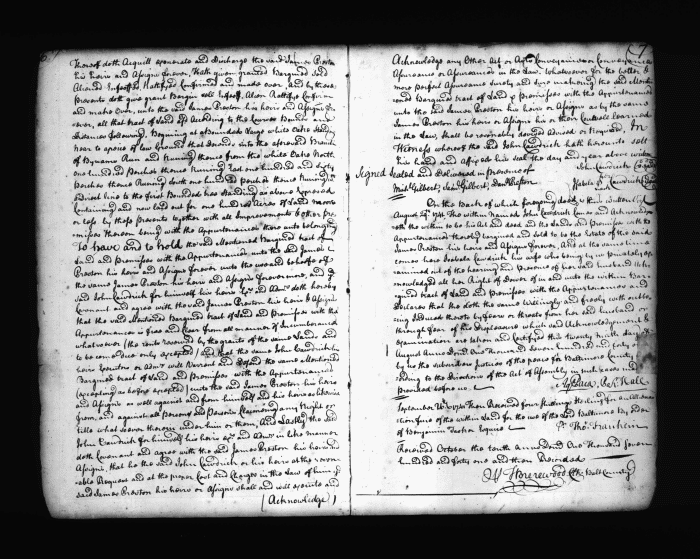 Thereof doth Acquitt exonerate and Discharge the said James Preston
his heirs and Assigns forever, Hath given granted Bargained Sold
Aliened Infeoffed Ratified Confirmed and made over, and by these
Presents doth give grant Bargain sell Infeoff Alien Rattifie Confirm
and make over, unto the said James Preston his heirs and Assigns for
ever, all that tract of Land According to the Courses Bounds and
Distances following. Begining at a bounded large white Oake standing
near to a piece of low Ground that descends into the Branch
of Bynams Run and Running thence from the white Oake North,
one hundred Perches thence Running East one hundred and sixty
Perches thence Running South one hundred perches thence Running
direct line to the first Bounded tree standing as above expressed
Containing and now laid out for one hundred Acres of Land more
or less by these presents together with all Improvements & other pre-
mises thereon being with the Appurtenances there unto belonging
To have and to hold the said Mentioned Bargained tract of
Land and Premises with the Appurtenances unto the said James
Preston his heirs and Assigns forever unto the use and behoofe of
the same James Preston his heirs and Assigns forevermore, and
said John Cawdrich for himself his heirs and Admrs doth hereby
Covenant and agree with the said James Preston his heirs & Assigns
that the said Mentioned Bargained tract of Land and Premises with the
Appurtenances is free and clear from all manner of Incumbrances
whatsoever (the rents reserved by the grants of the same Lands and
to become due only excepted) and that the same John Cawdrich his
heirs Executors or Admrs shall Warrant and Defend the same Mentioned
Bargained tract of Land and Premises with the Appurtenances
(excepting as before excepted) unto the said James Preston his heirs
and Assigns as well against and from himself and his heirs as likewise
from and against all persons Claiming any Right or
title what soever therein under him or them, And Lastly the said
John Cawdrich for himself his heirs and Admrs in like manner
doth Covenant and agree with the said James Preston his heirs
Assigns, that he the said John Cawdrich or his heirs at the reason-
able Request and at the proper Cost and Charges in the Law of him
said James Preston his heirs or Assigns shall and will execute and
(Acknowledge)
7
Acknowledge any Other Act or Acts Conveyance or Conveyances
Assurance or Assurances in the Law. Whatsoever for the better &
more perfect Assurance Surety and Sure making the said Mentioned
and Bargained tract of Land & Premises with the Appurtenances
unto the said James Preston his heirs or Assigns as by the same
James Preston his heirs or Assigns his or their Council learned
in the Law, shall be reasonably devised Advised or Required. In
Witness whereof the said John Cawdrich hath hereunto set
his hand and Affixed his seal the day and year above written
Signed Sealed and Delivered in presence of John Cawdrich
Mich Gilbert, Preston Isabela Cawdrich
On the Back of which foregoing deed is thus written
August 29th 1741 The within named John Cawdrich Came and Acknowledged
the within to be his Act and deed and the Lands and Premises with the
Appurtenances thereof bargained and sold to be the Estate of the said
James Preston his heirs and Assigns forever, And at the same time
comes here Isabela Cawdrich his wife who being by us privately ex-
amined out of the hearing and Presence of her said husband Ack-
nowledged all her Right of Dower of in and unto the within Barg-
ained tract of Land and Premises with the Appurtenances and
Declares that she doth the same Willingly and freely with out be-
ing Induced thereto by fears or threats from her said husband or
through fear of his Displeasure which said Acknowledgment &
Examination are taken and Certified this twenty Ninth day of
August Anno Domi One thousand seven hundred and forty one
by us the subscribers Justices of the peace for Baltimore County
according to the directions of the Act of Assembly in such cases made
provided before us. Hall
September Then Received four shillings Sterling for an Aliena-
tion fine of the within Land for the use of the Lord Baltimore by order
of Benjamin Tasker Esquire Pr Tho: Franklin
Received October the tenth Anno Domi One Thousand Seven
hundred and forty one and then Recorded